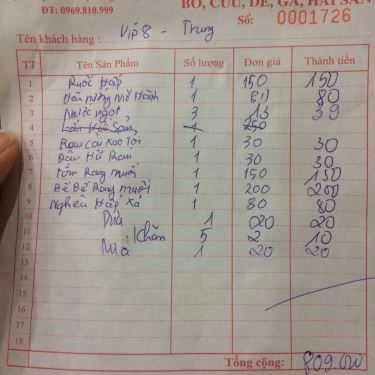 BÒ, CỪU, DÊ, GÀ, HẢI SẢN
ĐT: 0969.810.999
Số: 0001726
Tên khách hàng : Vip 8 - Trung
TT Tên Sản Phẩm Số lượng Đơn giá Thành tiền
1 Hấp 1 150 150
2 Hàu nướng Mỡ Hành 1 80 80
3 Nước ngọt 3 13 39
4 1 250
5 Rau Xào Tỏi 1 30 30
6 Rau 1 30 30
7 Tôm Rang muối 1 150 150
8 Bề Bề Rang muối 1 200 200
9 Nghêu Hấp Xả 1 80 80
10 Dứa 1 20 20
11 Khăn 5 2 10
12 1 20 20
13
14
15
16
17
18
Tổng cộng: 809.000